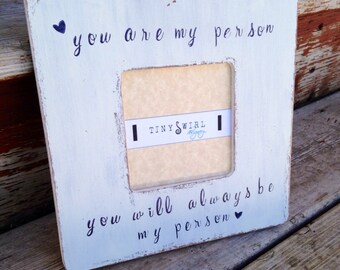 you are my person
TINYSWIRL
you will always be
my person